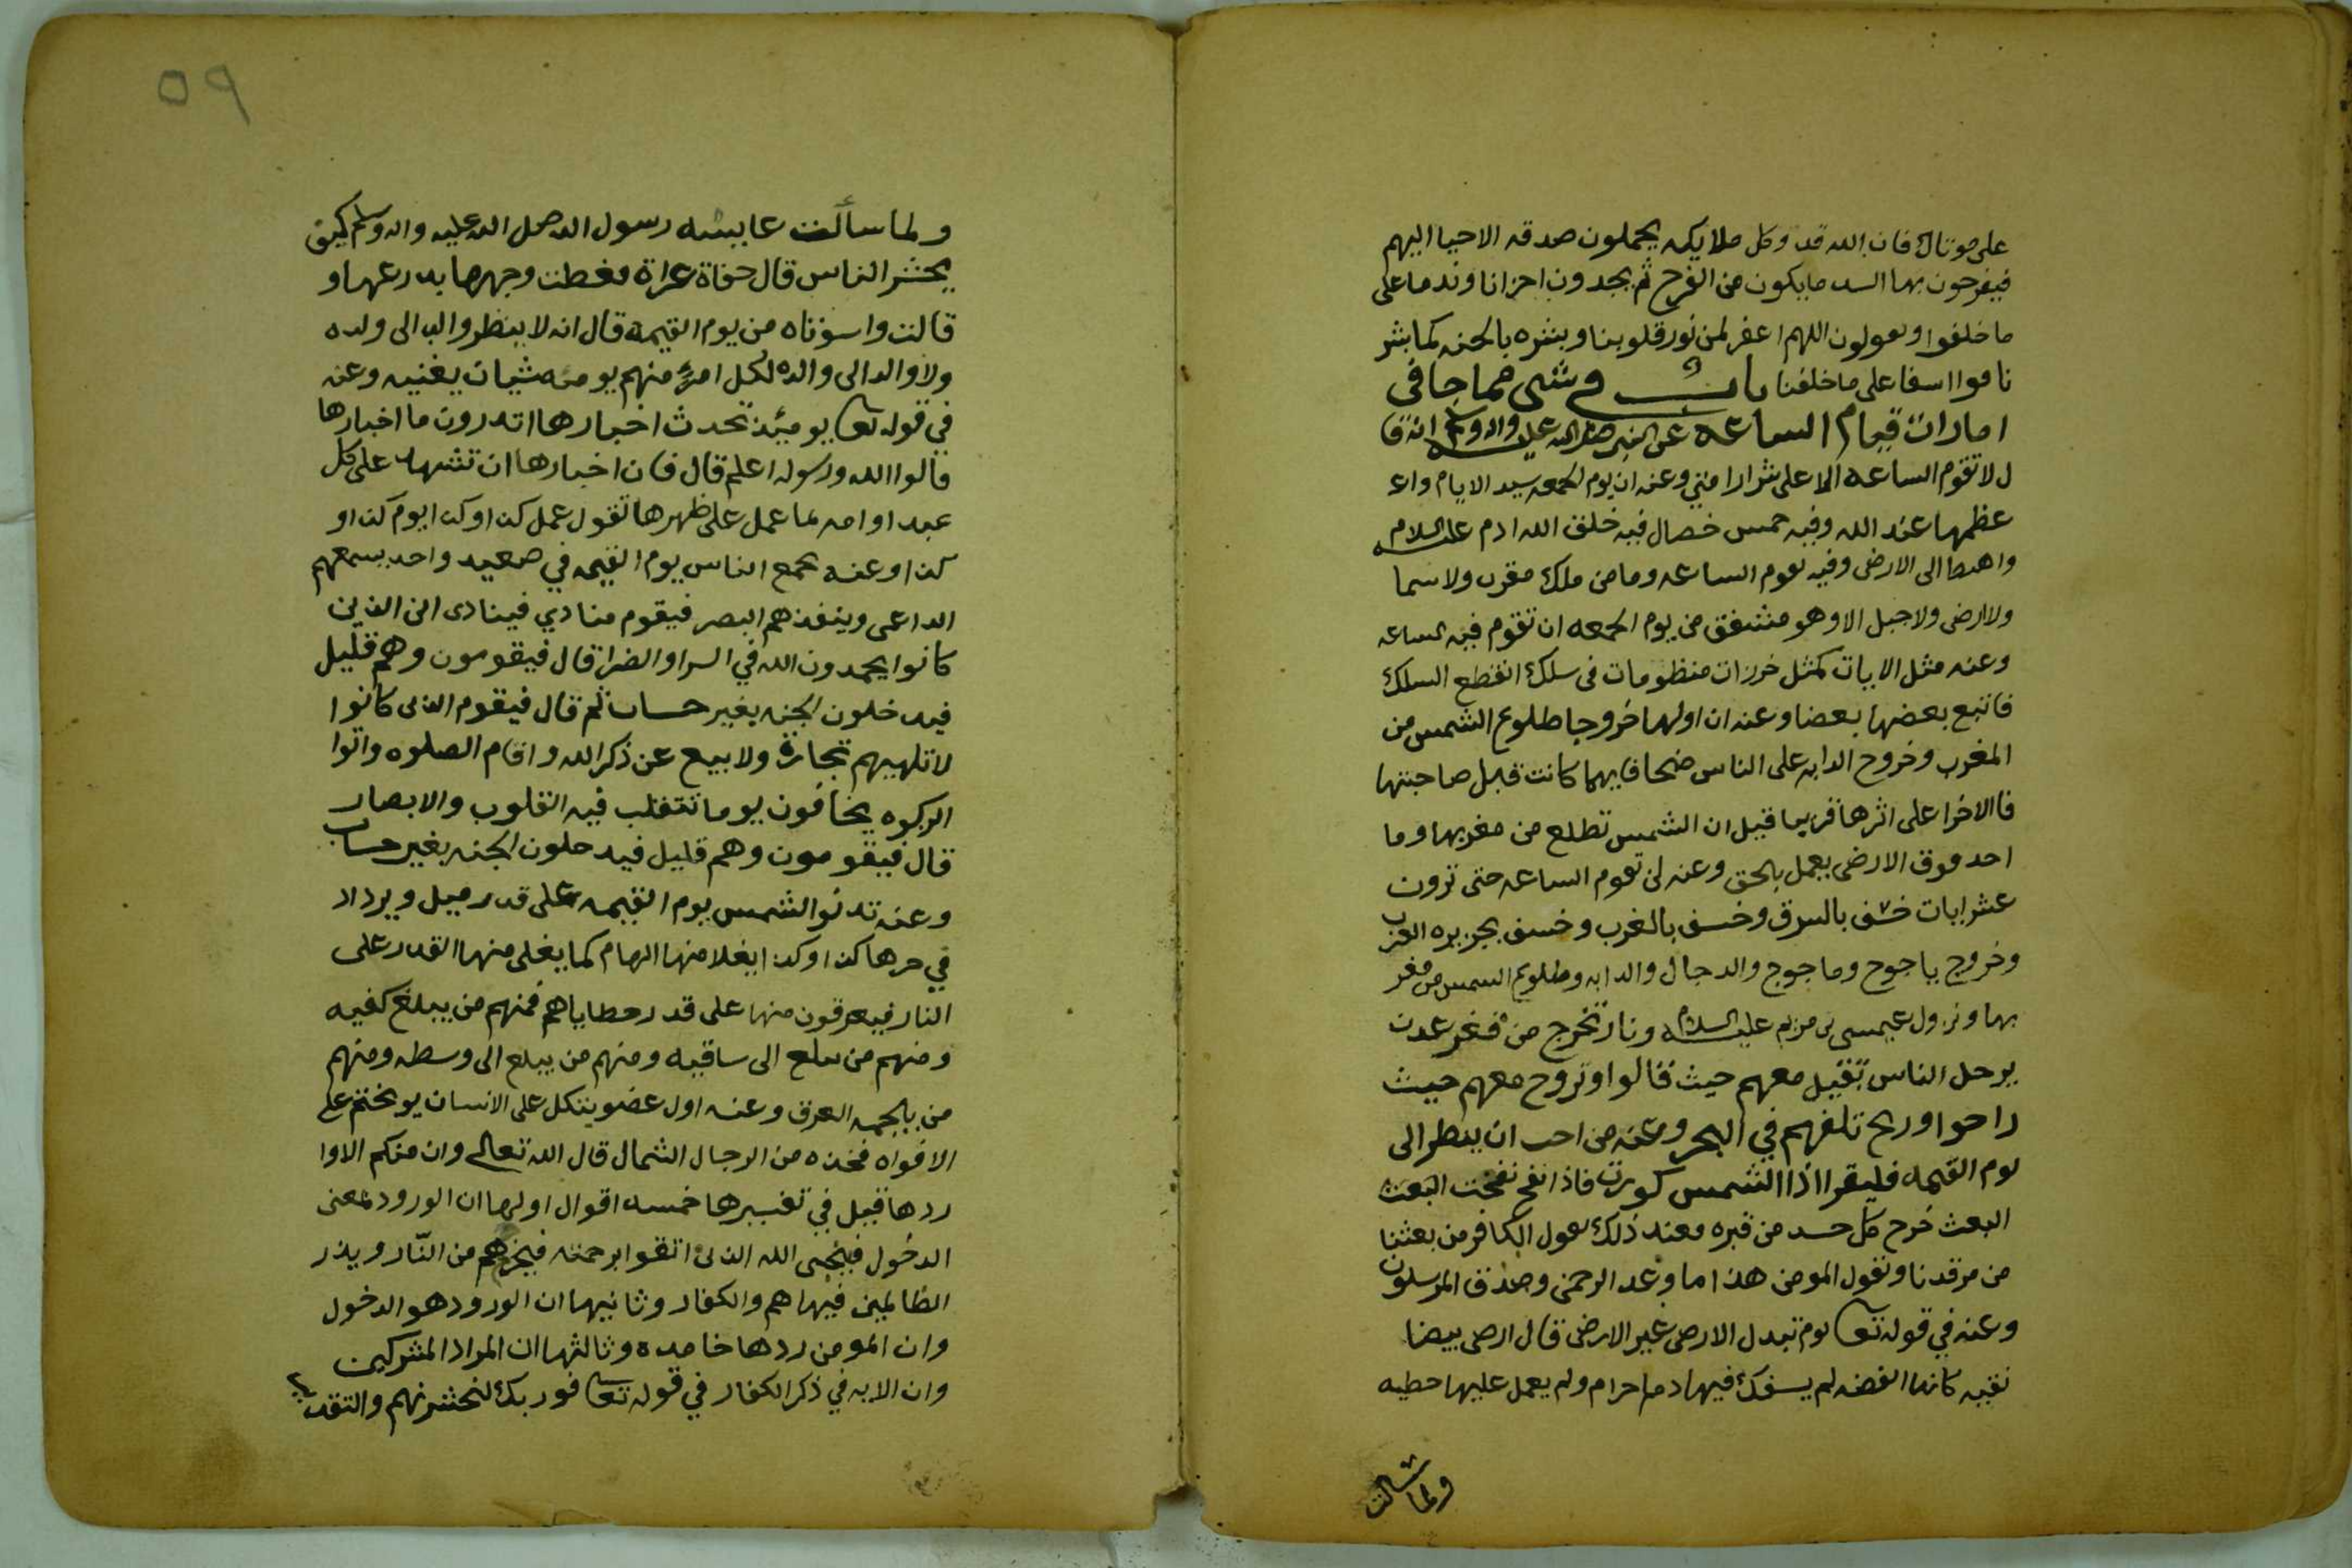 على موتاك فان الله قد وكل ملايكه يحملون صدقه الاحيا اليهم
فيفرحون بها اشد ما يكون من الفرح ثم يجدون احزانا وندما على
ما خلفوا ويقولون اللهم اغفر لمن نور قلوبنا وبشره بالجنه كما بشر
نا فوا اسفا على ما خلفنا باب في شي مما جا في
امارات قيام الساعه عن النبي صلى الله عليه واله وسلم انه قا
ل لا تقوم الساعه الا على شرار امتي وعنه ان يوم الجمعه سيد الايام واع
عظمها عند الله وفيه خمس خصال فيه خلق الله ادم عليه السلام
واهبط الى الارض وفيه تقوم الساعه وما من ملك مقرب ولا سما
ولا ارض ولا جبل الا وهو مشفق من يوم الجمعه ان تقوم فيه الساعه
وعنه مثل الايات كمثل خرزات منظومات في سلك انقطع السلك
فاتبع بعضها بعضا وعنه ان اولها خروجا طلوع الشمس من
المغرب وخروج الدابه على الناس ضحا فايهما كانت قبل صاحبتها
فالاخرا على اثرها قريبا قبل ان الشمس تطلع من مغربها وما
احد فوق الارض يعمل بالحق وعنه لن تقوم الساعه حتى ترون
عشر ايات خسف بالشرق وخسف بالغرب وخسف بجزيره العرب
وخروج ياجوج وماجوج والدجال والدابه وطلوع الشمس من مغر
بها ونزول عيسى بن مريم عليه السلام ونار تخرج من قعر عدن
يرحل الناس تقيل معهم حيث قالوا وتروح معهم حيث
راحوا وريح تلفهم في البحر وعنه من احب ان ينظر الى
يوم القيمه فليقرا اذا الشمس كورت فاذا نفخ نفخت البعث
البعث خرج كل جسد من قبره فعند ذلك يقول الكافر من بعثنا
من مرقدنا وتقول المومن هذا ما وعد الرحمن وصدق المرسلون
وعنه في قوله تعا يوم تبدل الارض غير الارض قال ارض بيضا
نقيه كانها الفضه لم يسفك فيها دما حرام ولم يعمل عليها خطيه
ولما سالت
٥٩
ولما سألت عايشه رسول الله صلى الله عليه واله وسلم كيف
يحشر الناس قال حفاة عراة فغطت وجهها بدرعها و
قالت واسوتاه من يوم القيمة قال انه لا ينظر والد الى ولده
ولا والد الى والده لكل امرئ منهم يومئذ شيان يغنيه وعنه
في قوله تعا يومئذ تحدث اخبارها اتدرون ما اخبارها
قالوا الله ورسوله اعلم قال فان اخبارها ان تشهد على كل
عبد او امه لما عمل على ظهرها تقول عمل كذا وكذا يوم كذا و
كذا وعنه يجمع الناس يوم القيمه في صعيد واحد يسمعهم
الداعي وينفذهم البصر فيقوم منادي فينادى اين الذين
كانوا يحمدون الله في السرا والضرا قال فيقومون وهم قليل
فيدخلون الجنه بغير حساب ثم قال فيقوم الذين كانوا
لا تلهيهم تجارة ولا بيع عن ذكر الله واقام الصلوه واتوا
الزكوه يخافون يوما تتقلب فيه القلوب والابصار
قال فيقومون وهم قليل فيدخلون الجنه بغير حساب
وعنه تدنوا الشمس يوم القيمه على قدر ميل ويزداد
في حرها كذا وكذا يغلا منها الهام كما يغلى منها القدر على
النار فيعرقون منها على قدر خطاياهم فمنهم من يبلغ كفيه
ومنهم من يبلغ الى ساقيه ومنهم من يبلغ الى وسطه ومنهم
من يلجمه العرق وعنه اول عضو يتكل على الانسان يو يختم على
الافواه فخذه من الرجال الشمال قال الله تعالى وان منكم الا وا
ردها قيل في تفسيرها خمسه اقوال اولها ان الورود بمعنى
الدخول فينجي الله الذين اتقوا برحمته فيخرجهم من النار ويذر
الظالمين فيها هم والكفار وثانيها ان الورود هو الدخول
وان المومن ردها خامده وثالثها ان المراد المشركين
وان الايه في ذكر الكفار في قوله تعا فوربك لنحشرنهم والتقد